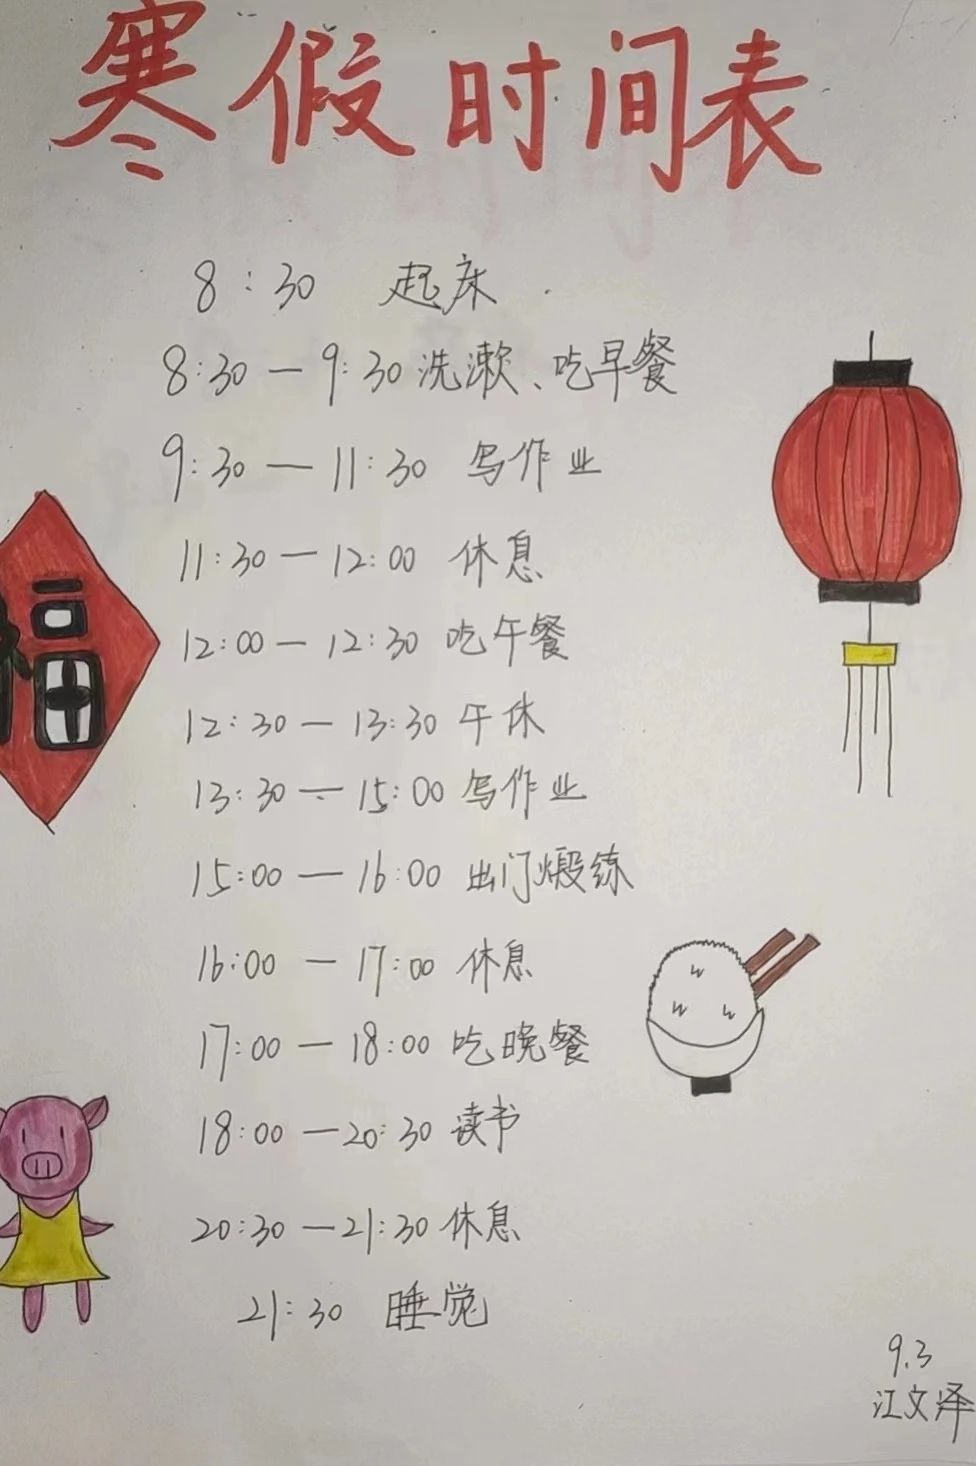 寒假时间表
8:30 起床
8:30—9:30 洗漱、吃早餐
9:30—11:30 写作业
11:30—12:00 休息
12:00—12:30 吃午餐
12:30—13:30 午休
13:30—15:00 写作业
15:00—16:00 出门煅练
16:00—17:00 休息
17:00—18:00 吃晚餐
18:00—20:30 读书
20:30—21:30 休息
21:30 睡觉
福
9.3
江文泽